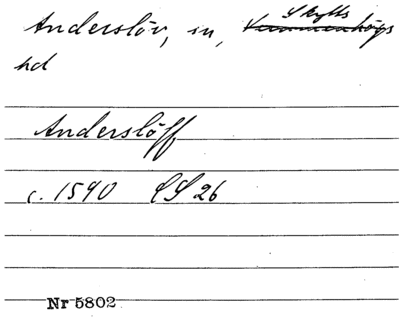 Anderslöv, in, Skytts
Vemmenhögs
hd
Anderslöff
c. 1590 LS 26
Nr 5802